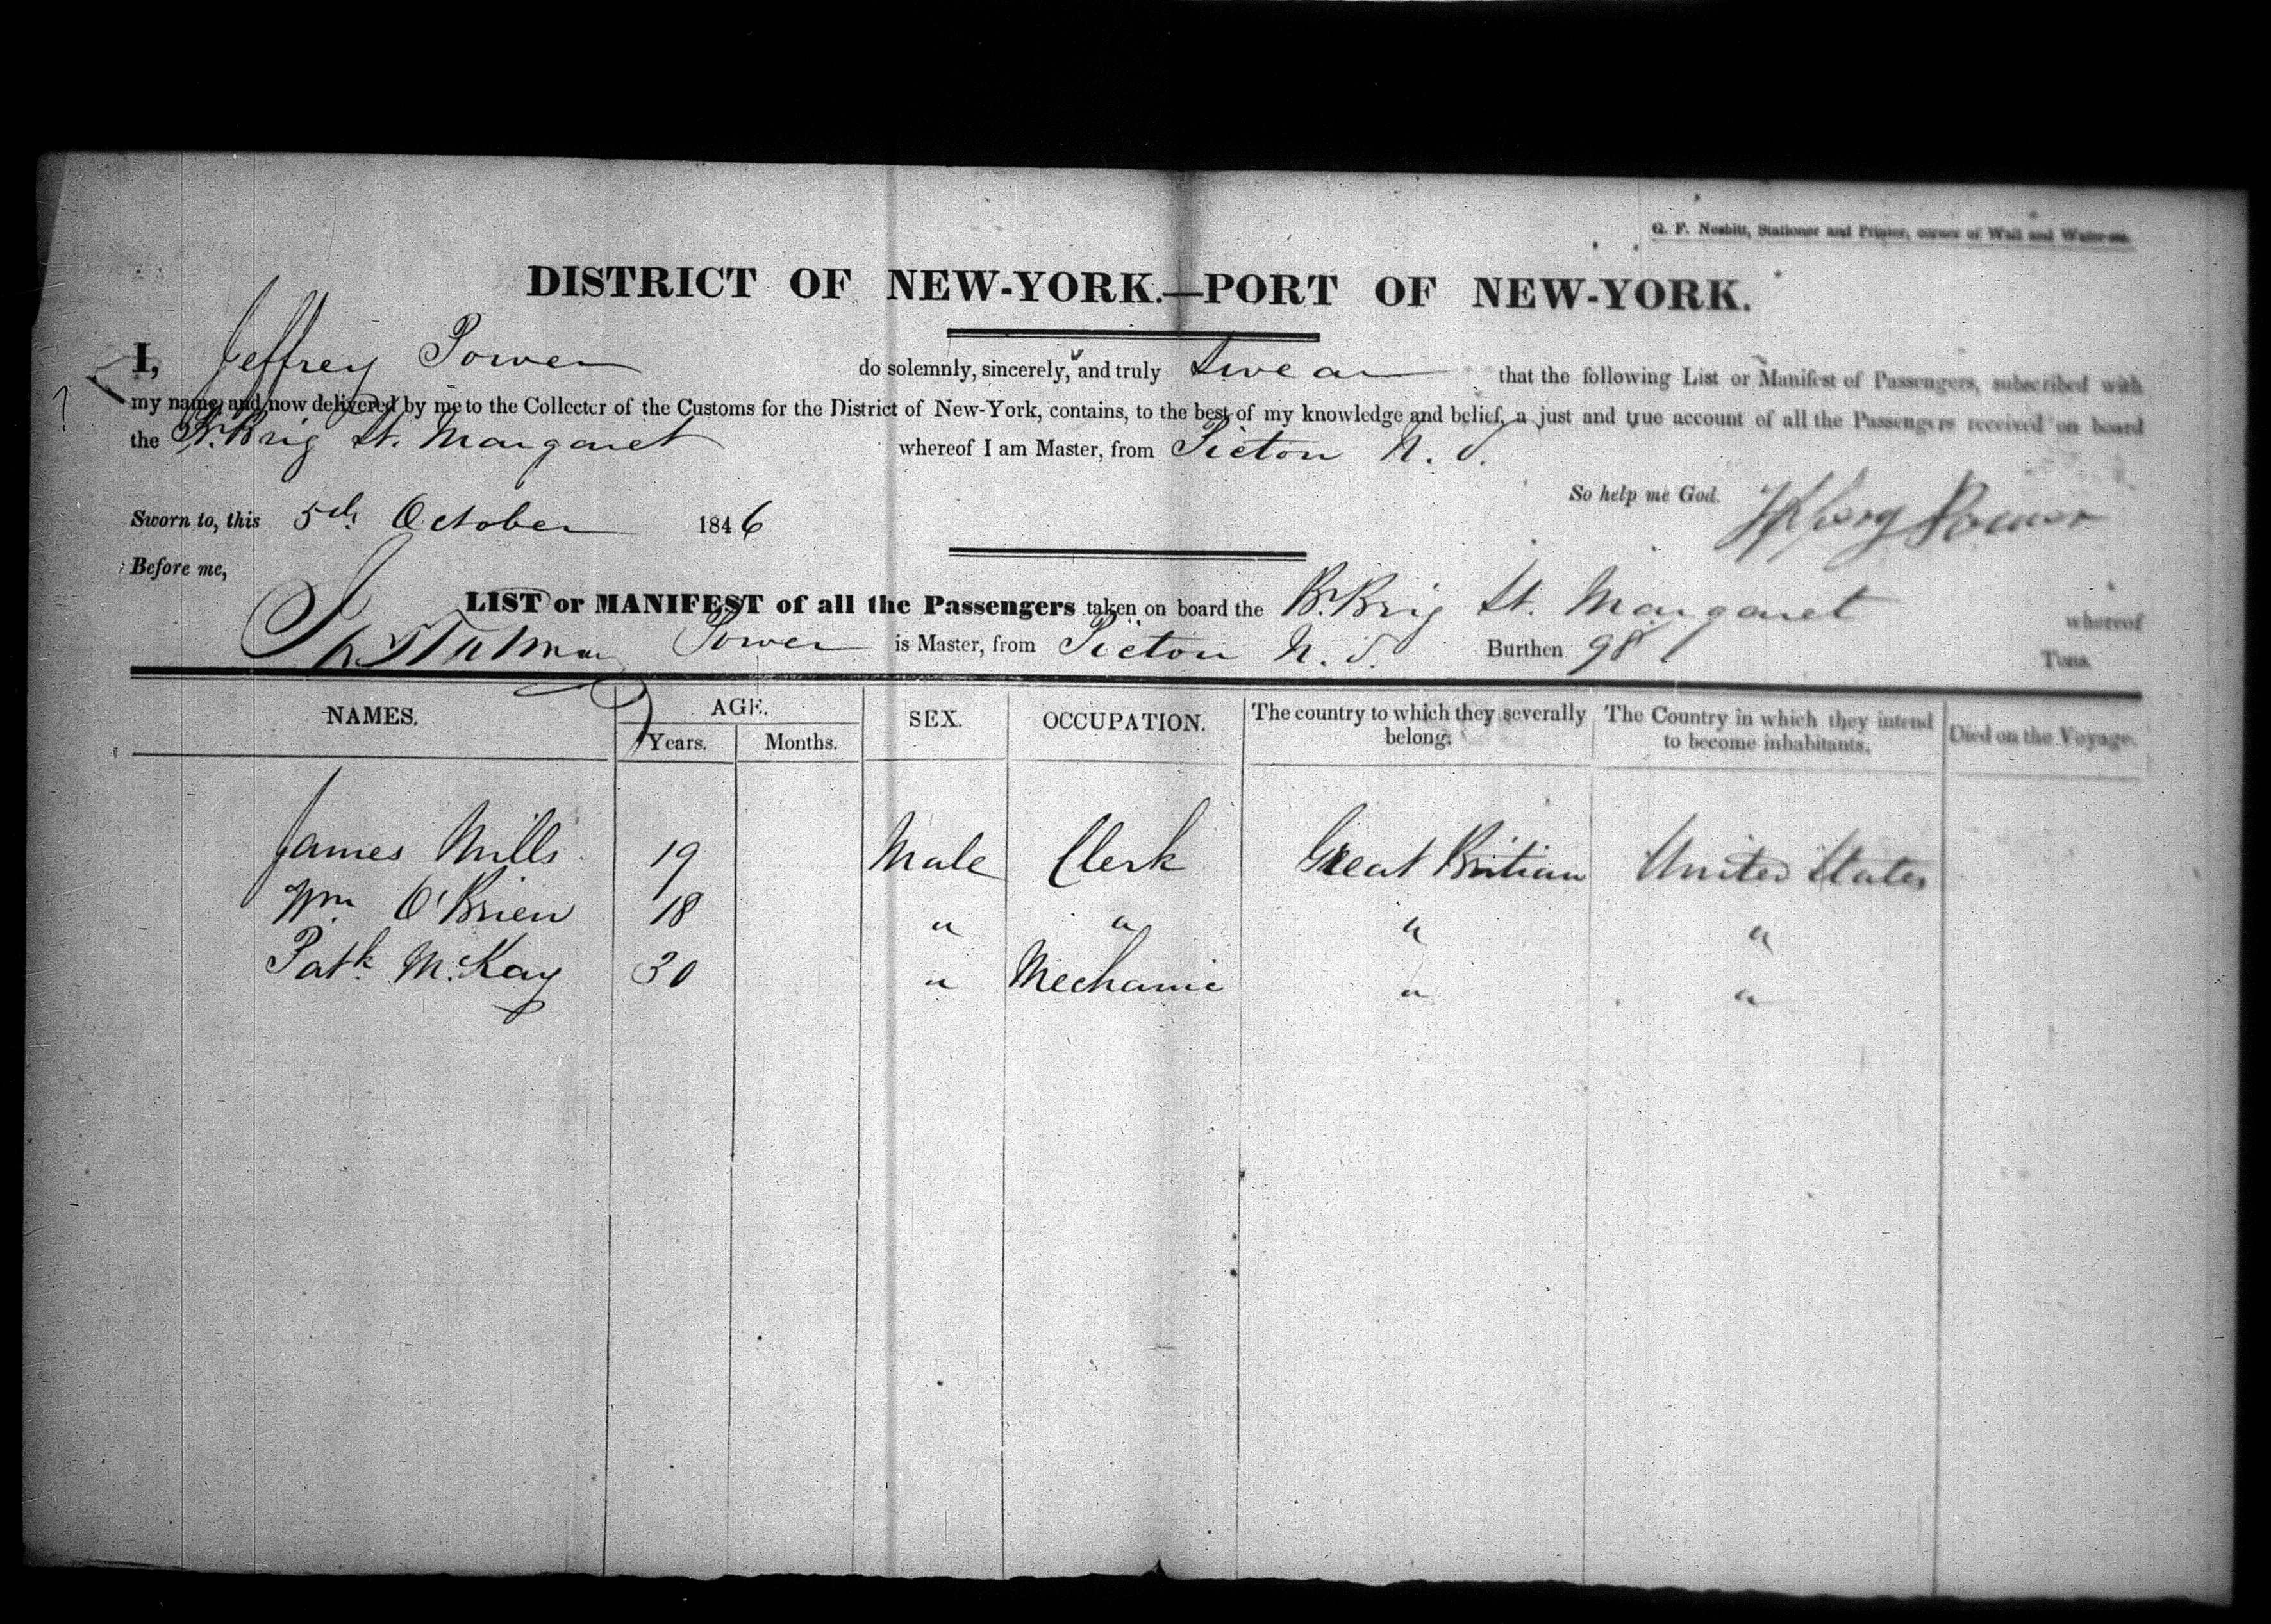 G. F. Nesbitt, Stationer and Printer, corner of Wall and Water-sts.
DISTRICT OF NEW-YORK.—PORT OF NEW-YORK.
I, Jeffrey Power do solemnly, sincerely, and truly swear that the following List or Manifest of Passengers, subscribed with
my name, and now delivered by me to the Collecter of the Customs for the District of New-York, contains, to the best of my knowledge and belief, a just and true account of all the Passengers received on board
the Br. Brig St. Margaret whereof I am Master, from Pictou N. S.
So help me God. Jeffery Power
Sworn to, this 5th October 1846
Before me,
LIST or MANIFEST of all the Passengers taken on board the Br. Brig St. Margaret whereof
Power is Master, from Pictou N. S. Burthen 98 Tons.
NAMES. AGE. SEX. OCCUPATION. The country to which they severally belong. The Country in which they intend to become inhabitants. Died on the Voyage.
Years. Months.
James Mills 19 Male Clerk Great Britian United States
Wm O'Brien 18 " " " "
Patk McKay 30 " Mechanic " "